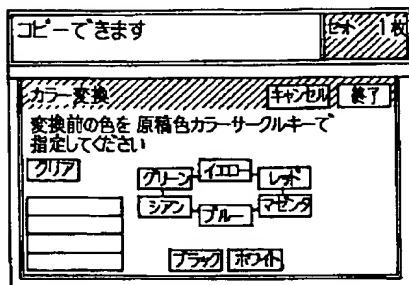 コピーできます
セット 1枚
カラー変換
キャンセル
終了
変換前の色を原稿色カラーサークルキーで
指定してください
クリア
グリーン
イエロー
レッド
シアン
ブルー
マゼンタ
ブラック
ホワイト